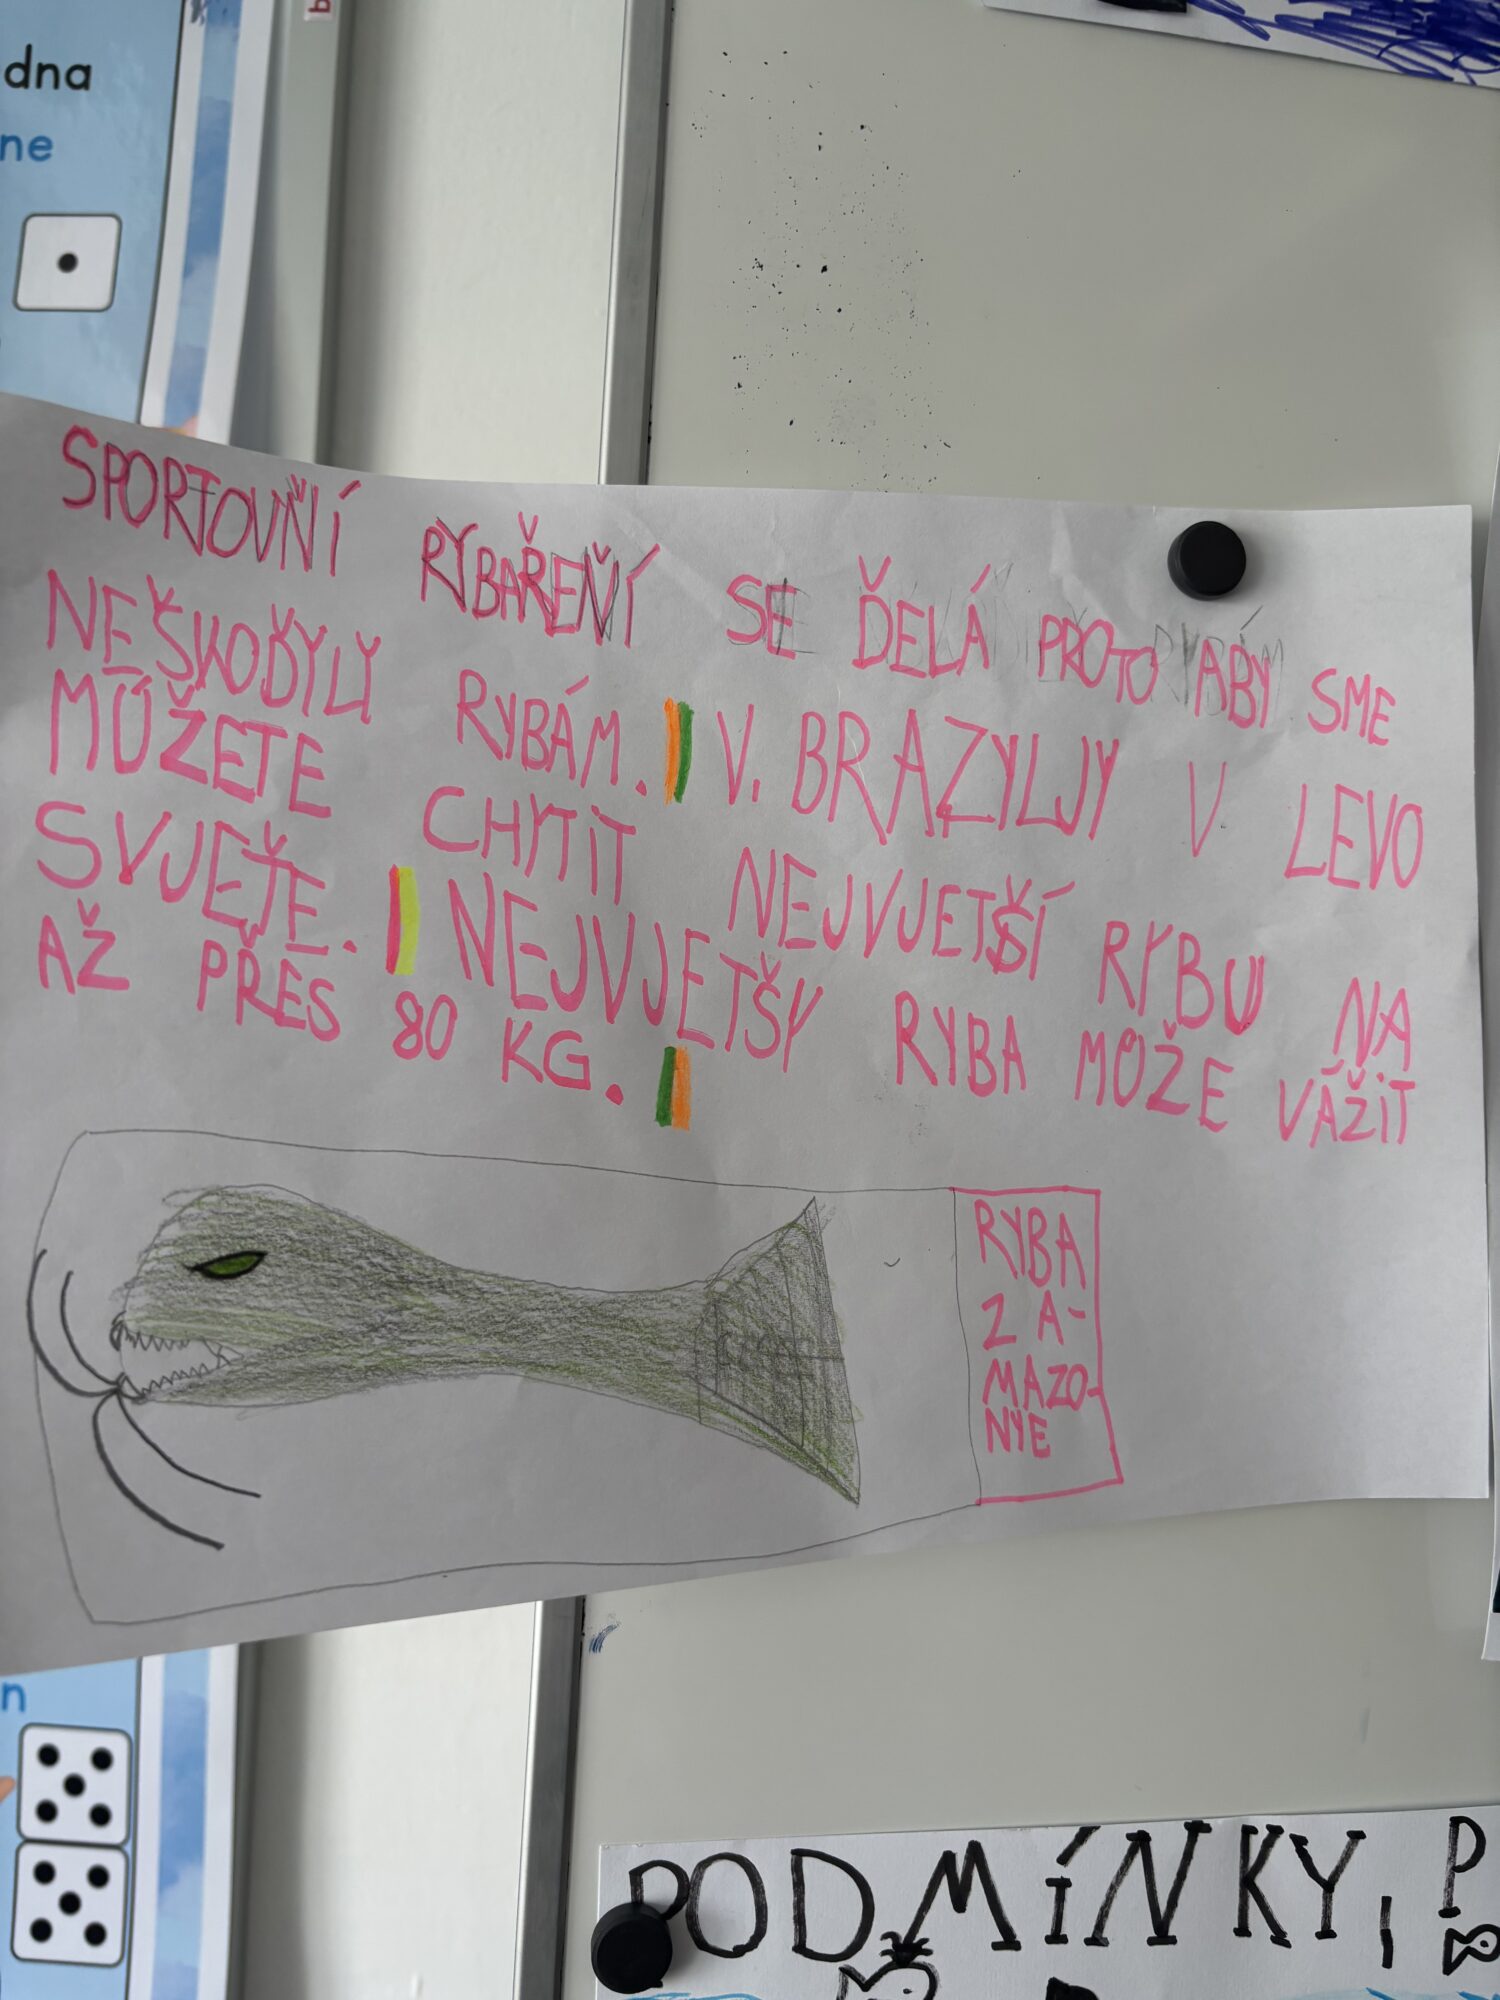 dna
ne
SPORTOVŇÍ RYBAŘEŇÍ SE ĎELÁ PROTO ABY SME
NEŠKOĎYLY RYBÁM. V. BRAZYLJY V LEVO
MŮŽETE CHYTIT NEJVJETŠÍ RYBU NA
SVJEŤE. NEJVJETŠY RYBA MOŽE VÁŽIT
AŽ PŘES 80 KG.
RYBA
Z A-
MAZO-
NYE
n
PODMÍNKY, P